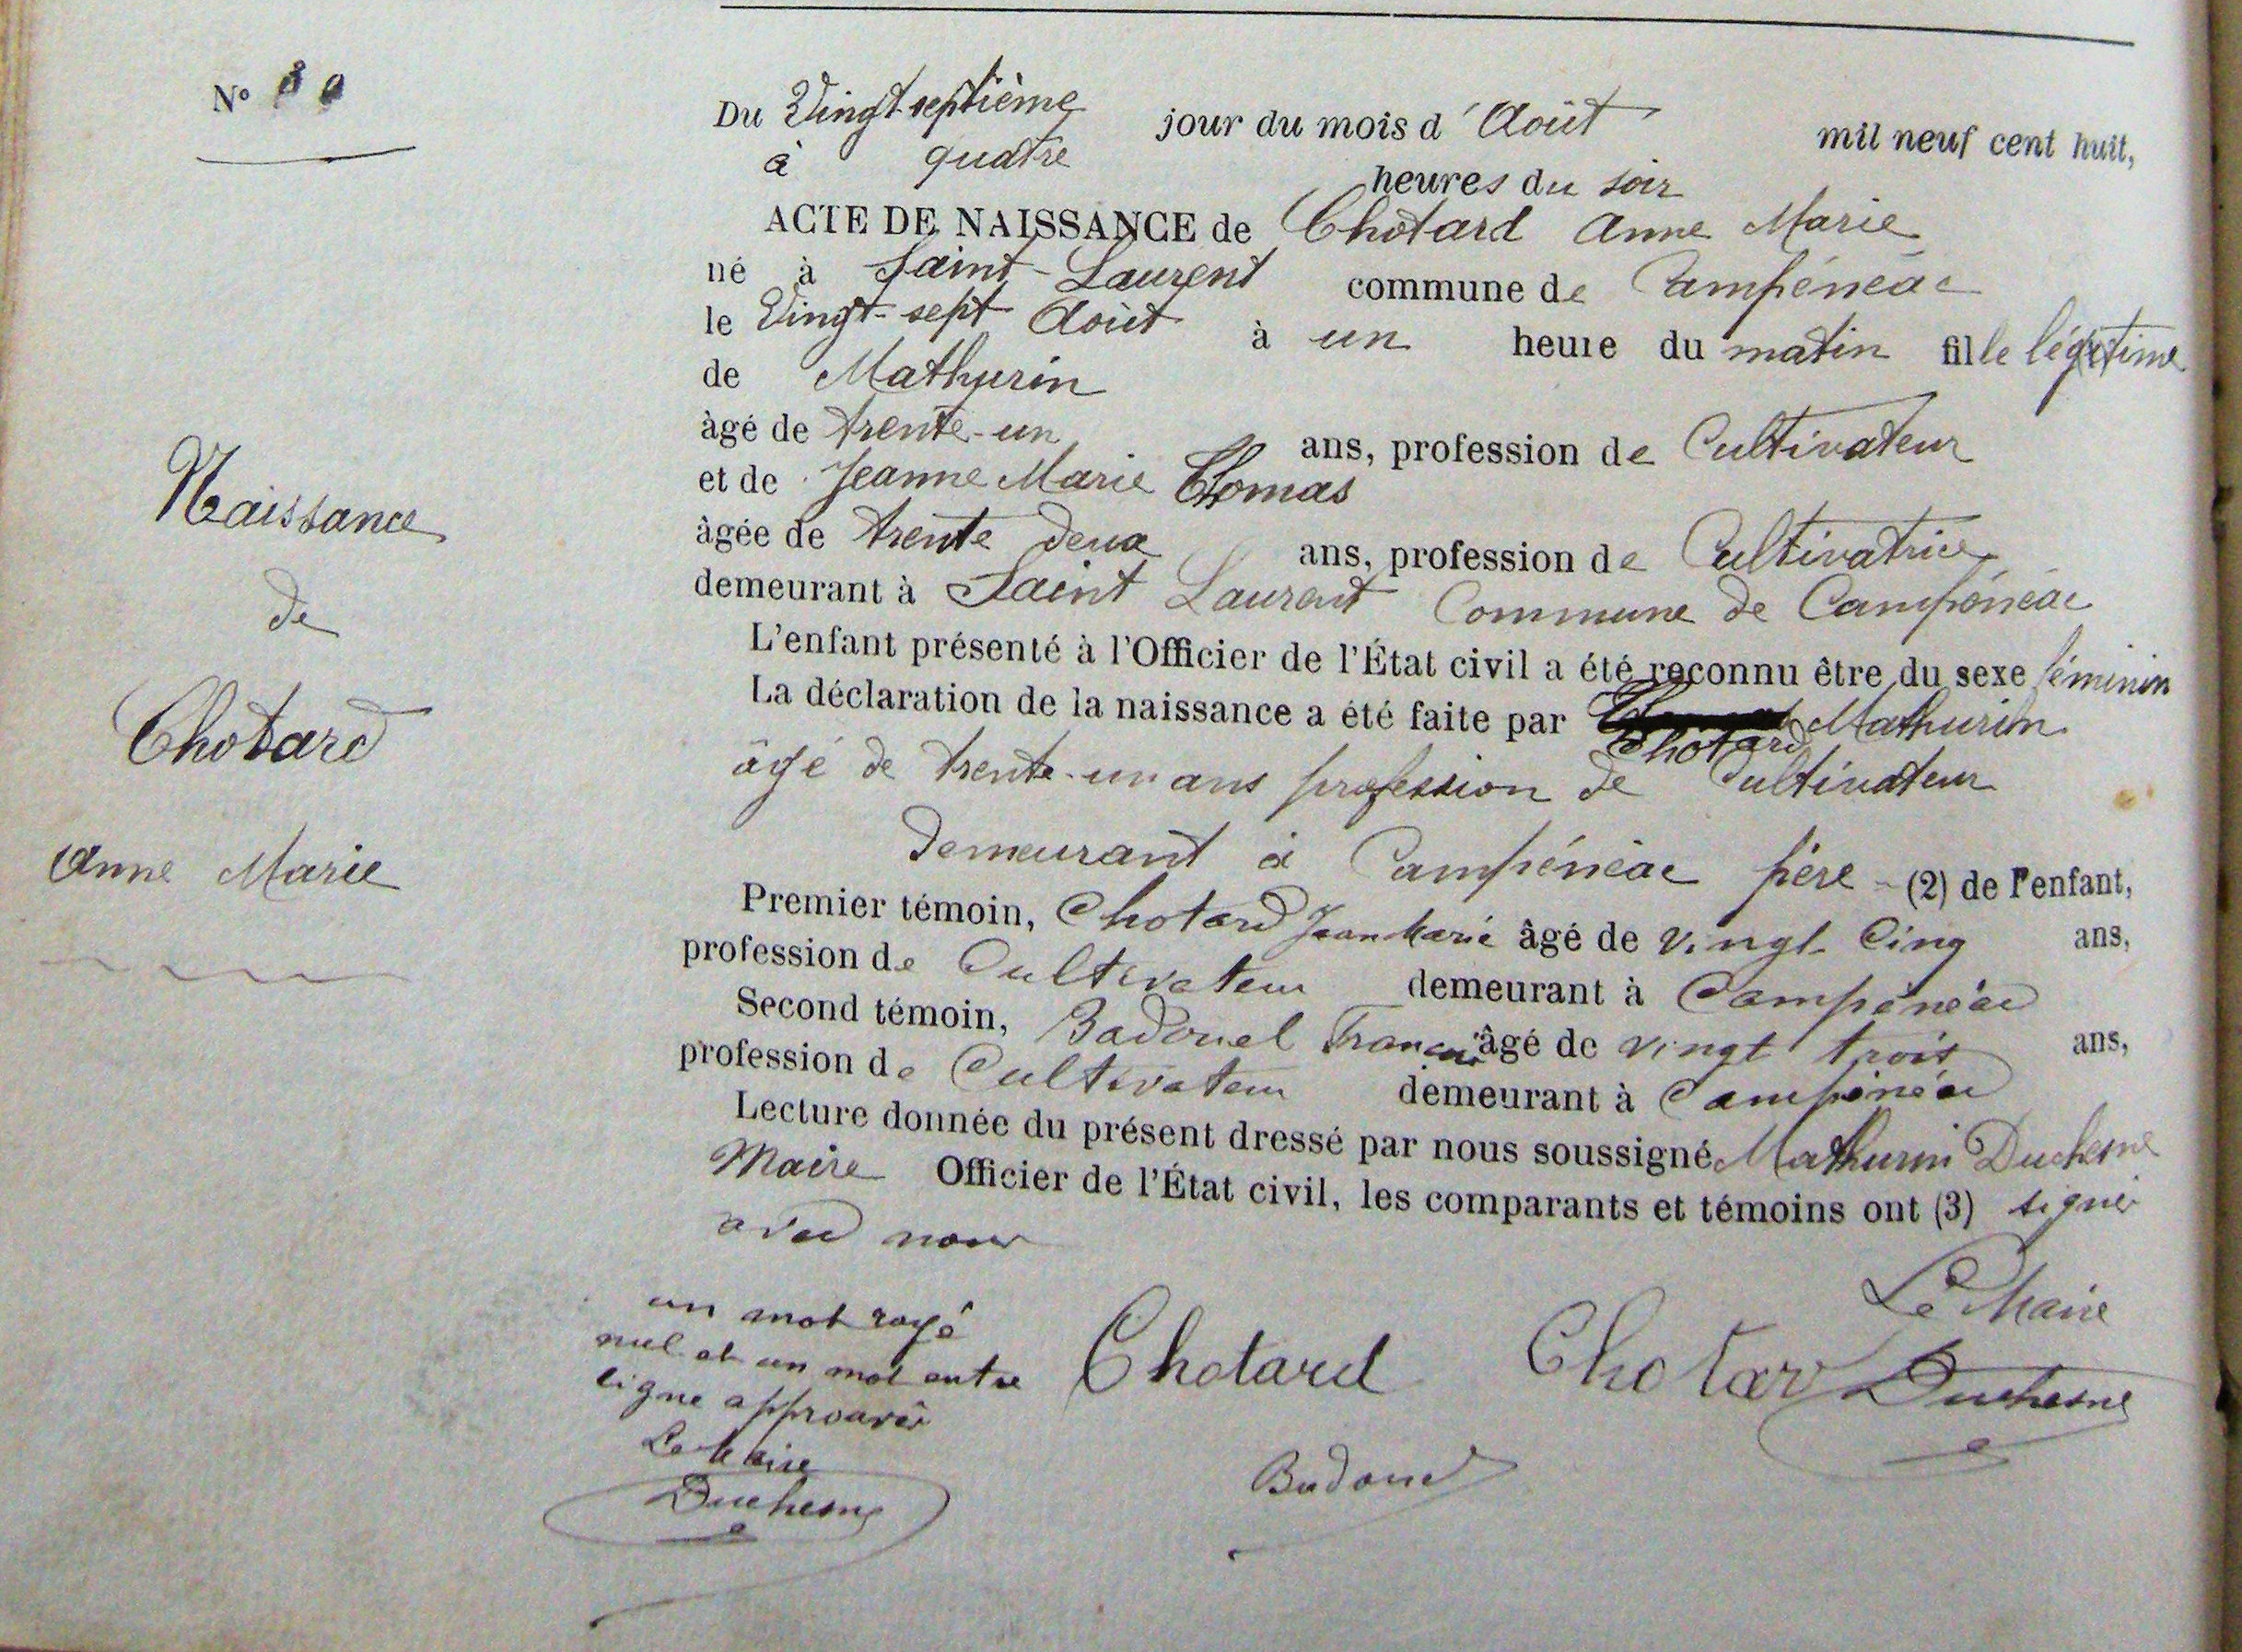 N° 80
Du Vingt-septième jour du mois d'Août mil neuf cent huit,
à quatre heures du soir
ACTE DE NAISSANCE de Chotard Anne Marie
né à Saint-Laurent commune de Campénéac
le Vingt-sept Août à un heure du matin fille légitime
de Mathurin
âgé de trente-un ans, profession de Cultivateur
et de Jeanne Marie Thomas
âgée de trente deux ans, profession de Cultivatrice
demeurant à Saint Laurent Commune de Campénéac
L'enfant présenté à l'Officier de l'État civil a été reconnu être du sexe féminin
La déclaration de la naissance a été faite par Mathurin
Chotard
âgé de trente-un ans profession de Cultivateur
demeurant à Campénéac père (2) de l'enfant,
Premier témoin, Chotard Jean Marie âgé de vingt-Cinq ans,
profession de Cultivateur demeurant à Campénéac
Second témoin, Badouel François âgé de vingt trois ans,
profession de Cultivateur demeurant à Campénéac
Lecture donnée du présent dressé par nous soussigné Mathurin Duchesne
Maire Officier de l'État civil, les comparants et témoins ont (3) signé
avec nous
Naissance
de
Chotard
Anne Marie
un mot rayé
nul et un mot entre
ligne approuvés
Le Maire
Duchesne
Chotard
Chotard
Le Maire
Duchesne
Badouel